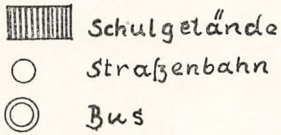 Schulgelände
Straßenbahn
Bus